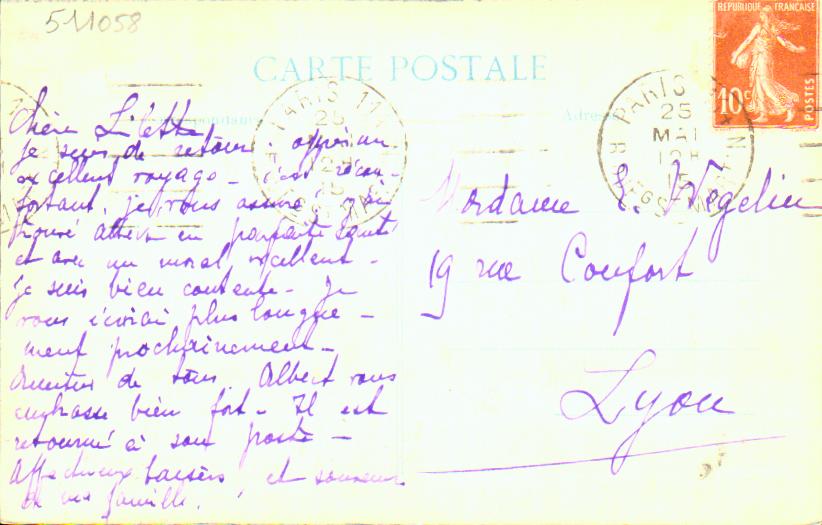 511058
CARTE POSTALE
RÉPUBLIQUE FRANÇAISE
10c POSTES
PARIS
25
MAI
Chère Lilette,
je suis de retour. après un
excellent voyage - c'est récon-
fortant, je vous assure. j'ai
trouvé Albert en parfaite santé
et avec un moral excellent -
je suis bien contente - je
vous écrirai plus longue -
ment prochainement -
Amitiés de tous. Albert vous
embrasse bien fort - Il est
retourné à son poste -
Affectueux baisers et
famille.
Madame E. Wegelin
19 rue Confort
Lyon